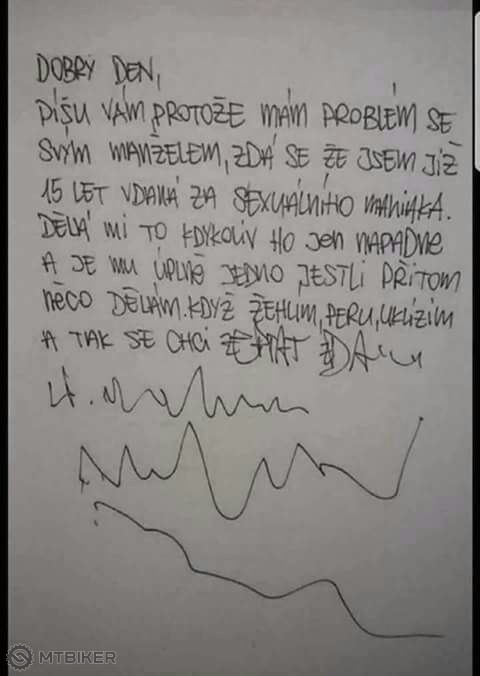 DOBRÝ DEN,
PÍŠU VÁM PROTOŽE MÁM PROBLÉM SE
SVÝM MANŽELEM, ZDÁ SE ŽE JSEM JIŽ
15 LET VDANÁ ZA SEXUÁLNÍHO MANIAKA.
DĚLÁ MI TO KDYKOLIV HO JEN NAPADNE
A JE MU ÚPLNĚ JEDNO JESTLI PŘITOM
NĚCO DĚLÁM. KDYŽ ŽEHLIM, PERU, UKLÍZIM
A TAK SE CHCI
MTBIKER